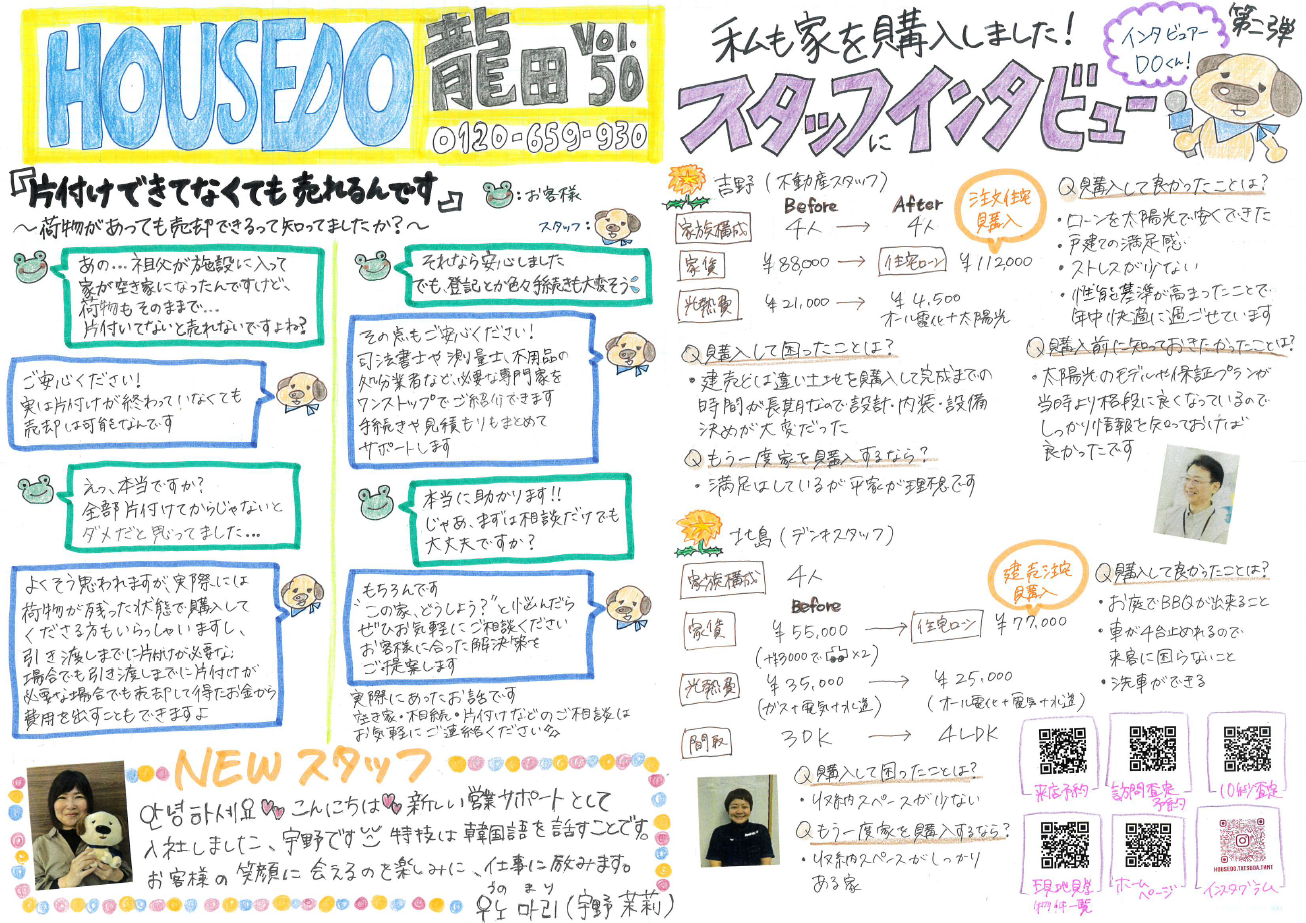 HOUSEDO
龍田 Vol.50
0120-659-930
『片付けできてなくても売れるんです』
:お客様
〜荷物があっても売却できるって知ってましたか?〜
スタッフ:
あの…祖父が施設に入って
家が空き家になったんですけど、
荷物もそのままで…
片付いてないと売れないですよね?
ご安心ください!
実は片付けが終わっていなくても
売却は可能なんです
えっ、本当ですか?
全部片付けてからじゃないと
ダメだと思ってました…
よくそう思われますが、実際には
荷物が残った状態で購入して
くださる方もいらっしゃいますし、
引き渡しまでに片付けが必要な
場合でも引き渡しまでに片付けが
必要な場合でも売却して得たお金から
費用を出すこともできますよ
それなら安心しました
でも、登記とか色々手続きも大変そう
その点もご安心ください!
司法書士や測量士、不用品の
処分業者など、必要な専門家を
ワンストップでご紹介できます
手続きや見積もりもまとめて
サポートします
本当に助かります!!
じゃあ、まずは相談だけでも
大丈夫ですか?
もちろんです
"この家、どうしよう?"と悩んだら
ぜひお気軽にご相談ください
お客様に合った解決策を
ご提案します
実際にあったお話です
空き家・相続・片付けなどのご相談は
お気軽にご連絡ください
NEWスタッフ
안녕하세요 こんにちは 新しい営業サポートとして
入社しました、宇野です 特技は韓国語を話すことです。
お客様の笑顔に会えるのを楽しみに、仕事に励みます。
うの まり
우노 마리(宇野 茉莉)
私も家を購入しました!
スタッフにインタビュー
インタビュアー
DOくん!
第二弾
吉野(不動産スタッフ)
注文住宅
購入
Before After
家族構成 4人 → 4人
家賃 ¥88,000 → 住宅ローン ¥112,000
光熱費 ¥21,000 → ¥4,500
オール電化+太陽光
Q購入して良かったことは?
・ローンを太陽光で安くできた
・戸建ての満足感
・ストレスが少ない
・性能基準が高まったことで
年中快適に過ごせています
Q購入して困ったことは?
・建売とは違い土地を購入して完成までの
時間が長期なので設計・内装・設備
決めが大変だった
Qもう一度家を購入するなら?
・満足はしているが平家が理想です
Q購入前に知っておきたかったことは?
・太陽光のモデルや保証プランが
当時より格段に良くなっているので
しっかり情報を知っておけば
良かったです
北島(デンキスタッフ)
建売住宅
購入
家族構成 4人
Before
家賃 ¥55,000 → 住宅ローン ¥77,000
(+¥3000で ×2)
光熱費 ¥35,000 → ¥25,000
(ガス+電気+水道) (オール電化+電気+水道)
間取 3DK → 4LDK
Q購入して良かったことは?
・お庭でBBQが出来ること
・車が4台止めれるので
来客に困らないこと
・洗車ができる
Q購入して困ったことは?
・収納スペースが少ない
Qもう一度家を購入するなら?
・収納スペースがしっかり
ある家
来店予約
訪問査定
予約
10秒査定
現地見学
物件一覧
ホーム
ページ
HOUSEDO.TATSUDA.TKNT
インスタグラム